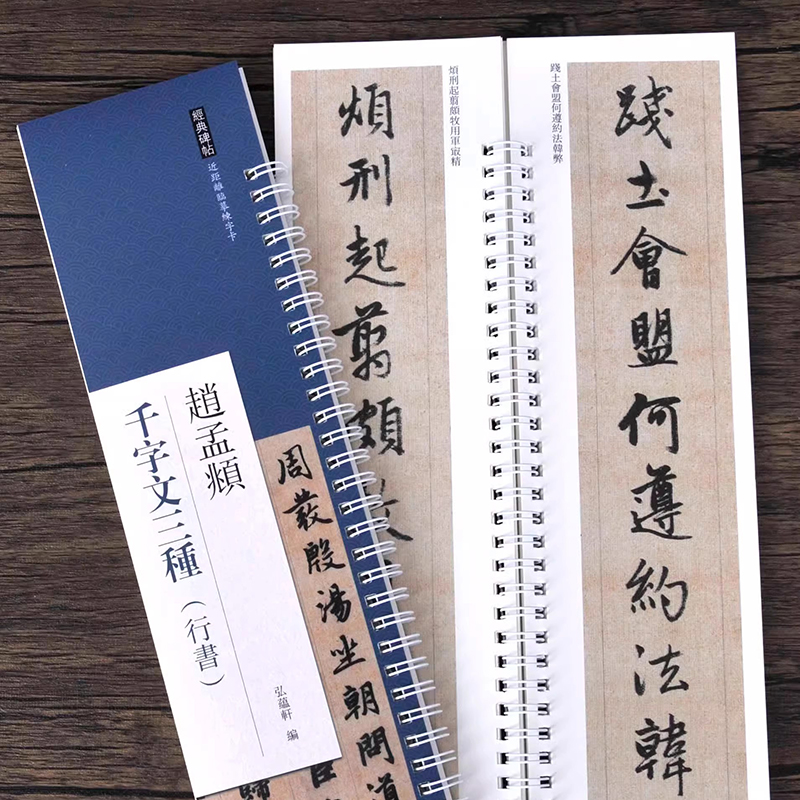 經典碑帖
近距離臨摹練字卡
趙孟頫
千字文三種（行書）
弘蘊軒 編
周發殷湯坐朝問道
臣
歸
踐土會盟何遵約法韓弊
踐土會盟何遵約法韓
煩刑起翦頗牧用軍㝡精
煩刑起翦頗